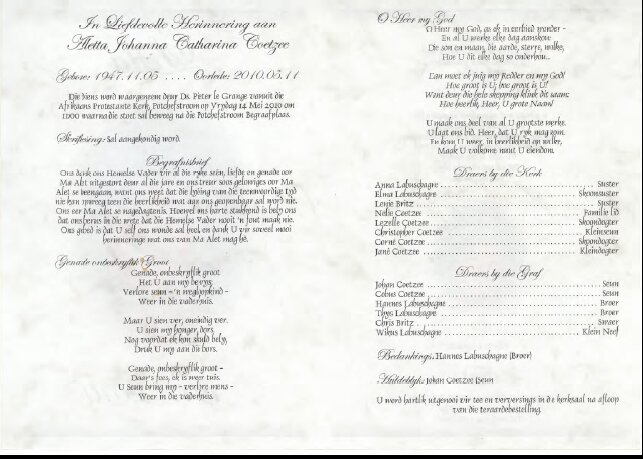 In Liefdevolle Herinnering aan
Aletta Johanna Catharina Coetzee
Gebore: 1947.11.05 .... Oorlede: 2010.05.11
Die diens word waargeneem deur Ds. Peter le Grange vanuit die
Afrikaans Protestante Kerk, Potchefstroom op Vrydag 14 Mei 2010 om
11:00 waarna die stoet sal beweeg na die Potchefstroom Begraafplaas.
Skriflesing: Sal aangekondig word.
Begrafnisbrief
Ons dank ons Hemelse Vader vir al die ryke seën, liefde en genade oor
Ma Alet uitgestort deur al die jare en ons treur soos gelowiges oor Ma
Alet se heengaan, want ons weet dat die lyding van die teenwoordige tyd
nie kan opweeg teen die heerlikheid wat aan ons geopenbaar sal word nie.
Ons eer Ma Alet se nagedagtenis. Hoewel ons harte stukkend is help ons
dat ons berus in die wete dat die Hemelse Vader nooit 'n fout maak nie.
Ons gebed is dat U self ons wonde sal heel en dank U vir soveel mooi
herinneringe wat ons van Ma Alet mag hê.
Genade onbeskryflik Groot
Genade, onbeskryflik groot
Het U aan my bewys.
Verlore seun - 'n wegloopkind -
Weer in die vaderhuis.
Maar U sien ver, oneindig ver.
U sien my honger dors.
Nog voordat ek kon skuld bely,
Druk U my aan die bors.
Genade, onbeskryflik groot -
Daar's fees, ek is weer tuis.
U Seun bring my - verlore mens -
Weer in die vaderhuis.
O Heer my God
O Heer my God, as ek in eerbied wonder -
En al U werke elke dag aanskou:
Die son en maan, die aarde, sterre, wolke,
Hoe U dit elke dag so onderhou...
Dan moet ek juig my Redder en my God!
Hoe groot is U; hoe groot is U!
Want deur die hele skepping klink dit saam:
Hoe heerlik, Heer, U grote Naam!
U maak ons deel van al U grootste werke.
U laat ons bid: Heer, dat U ryk mag kom.
En kom U weer, in heerlikheid en wolke,
Maak U volkome nuut U eiendom.
Draers by die Kerk
Anna Labuschagne ........ Suster
Elma Labuschagne ........ Skoonsuster
Lenie Britz ........ Suster
Nelie Coetzee ........ Familie lid
Lezelle Coetzee ........ Skoondogter
Christopher Coetzee ........ Kleinseun
Corné Coetzee ........ Skoondogter
Jané Coetzee ........ Kleindogter
Draers by die Graf
Johan Coetzee ........ Seun
Cobus Coetzee ........ Seun
Hannes Labuschagne ........ Broer
Thys Labuschagne ........ Broer
Chris Britz ........ Swaer
Wikus Labuschagne ........ Klein Neef
Bedankings: Hannes Labuschagne (Broer)
Huldeblyk: Johan Coetzee (Seun
U word hartlik uitgenooi vir tee en verversings in de kerksaal na afloop
van die teraardebestelling.